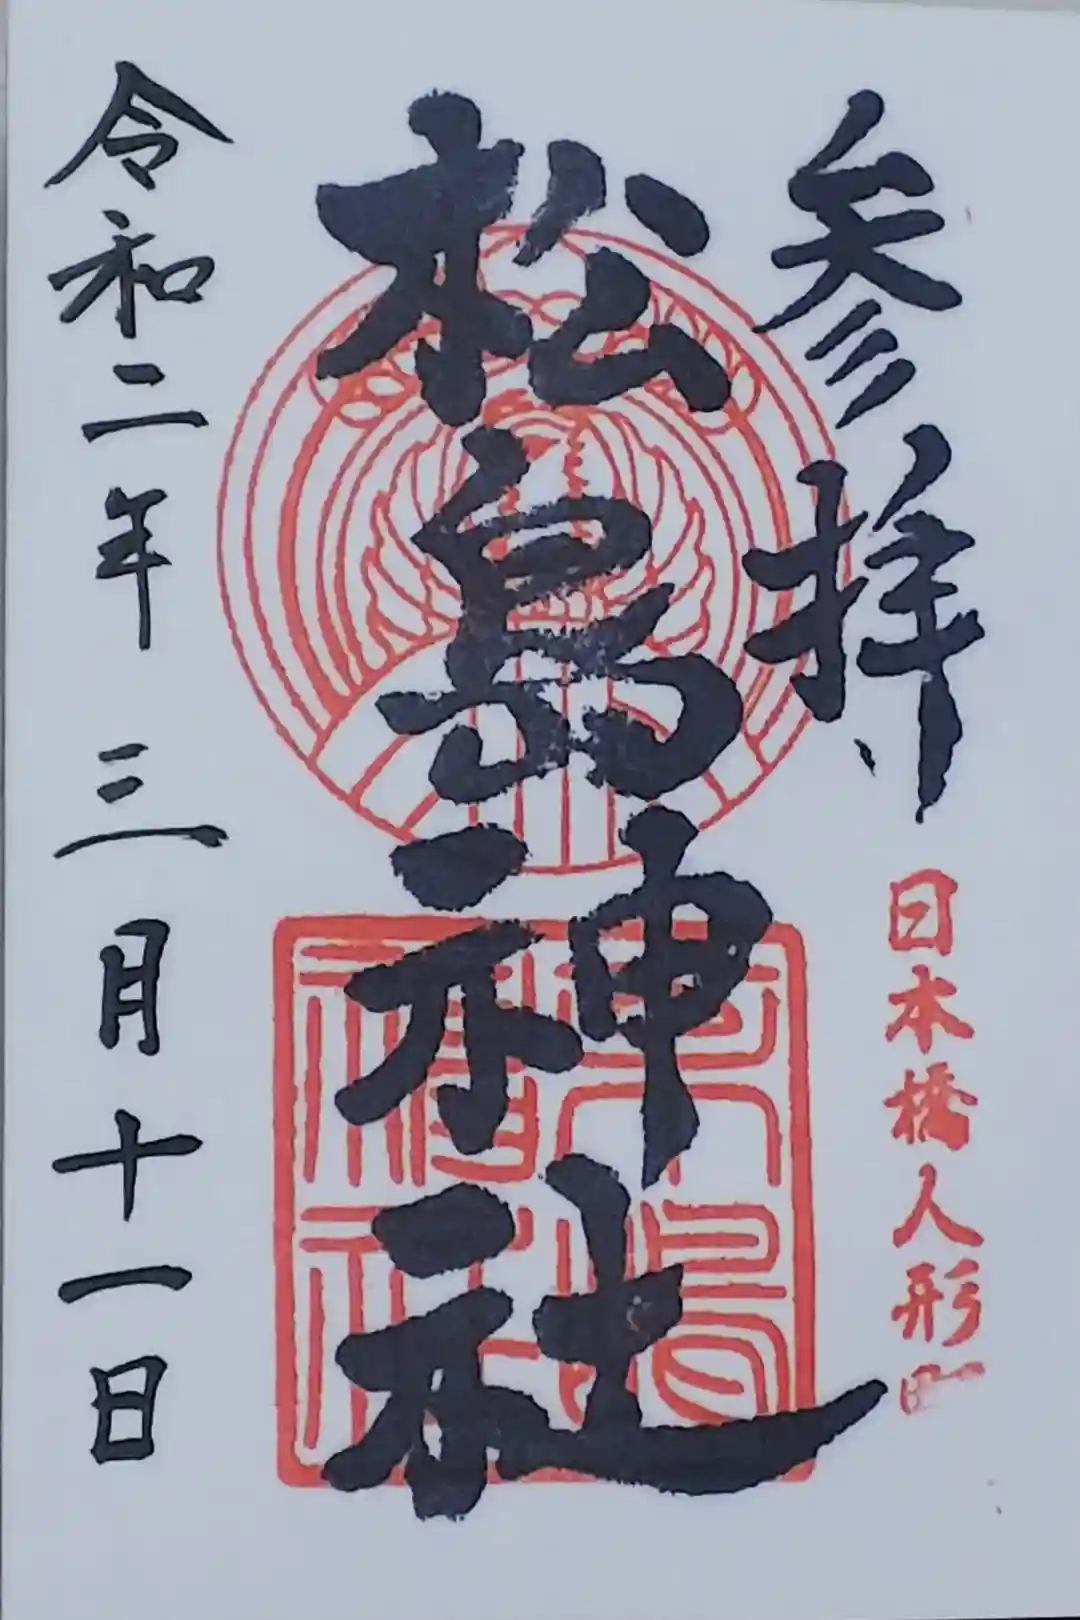 参拝
日本橋人形町
松島神社
松島神社
令和二年 三月十一日